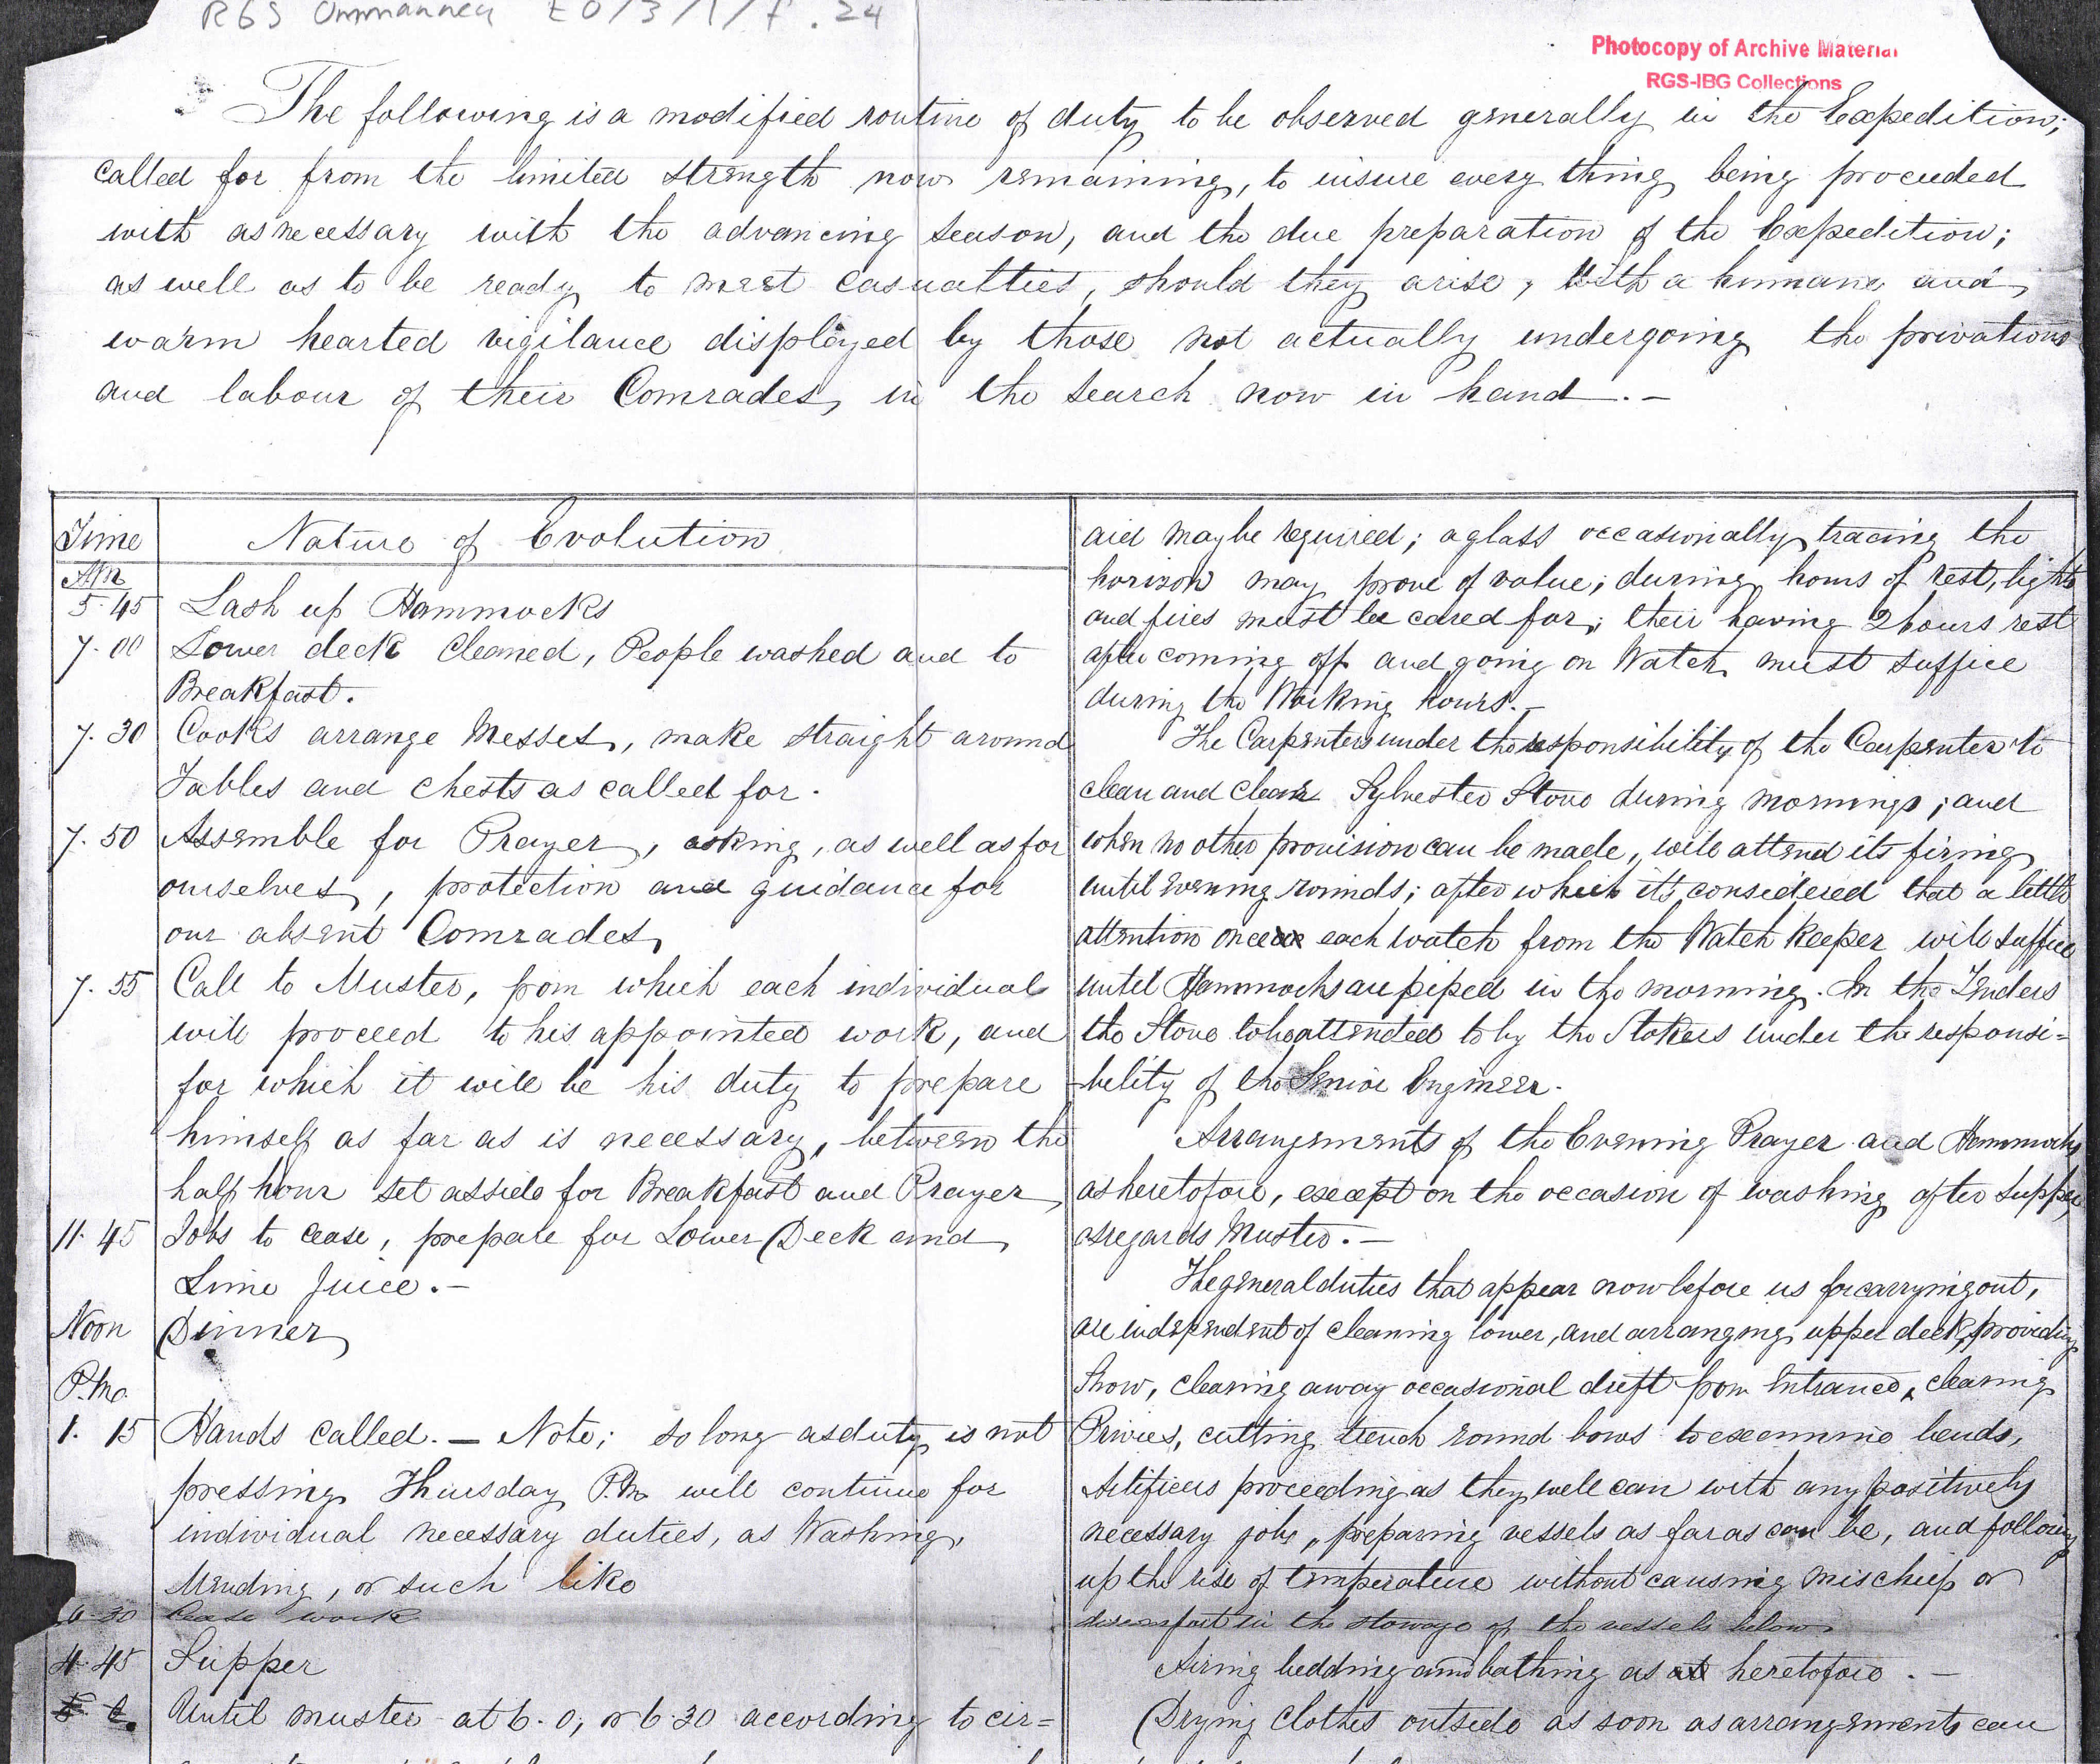 RGS Ommanney EO/3/1/f.24
Photocopy of Archive Material
RGS-IBG Collections
The following is a modified routine of duty to be observed generally in the Expedition;
called for from the limited strength now remaining, to insure every thing being proceeded
with as necessary with the advancing season, and the due preparation of the Expedition;
as well as to be ready to meet casualties, should they arise, with a humane and
warm hearted vigilance displayed by those not actually undergoing the privations
and labour of their Comrades, in the search now in hand.-
Time
Nature of Evolution
AM
5.45 Lash up Hammocks
7.00 Lower deck cleaned, People washed and to
Breakfast.
7.30 Cooks arrange Messes, make straight around
Tables and chests as called for.
7.50 Assemble for Prayer, asking, as well as for
ourselves, protection and guidance for
our absent Comrades,
7.55 Call to Muster, from which each individual
will proceed to his appointed work, and
for which it will be his duty to prepare
himself as far as is necessary, between the
half hour set asside for Breakfast and Prayer,
11.45 Jobs to cease, prepare for Lower Deck and
Lime Juice.-
Noon Dinner
P.M.
1.15 Hands called.- Note; so long as duty is not
pressing Thursday P.M. will continue for
individual necessary duties, as Washing,
Mending, or such like
30 Cease work
4.45 Supper
Until muster at 6.0, or 6.30 according to cir=
aid may be required; a glass occasionally tracing the
horizon may prove of value; during hours of rest, lights
and fires must be cared for; their having 2 hours rest
after coming off and going on Watch must suffice
during the Working hours.-
The Carpenters under the responsibility of the Carpenter to
clean and clear Sylvester Stove during mornings; and
when no other provision can be made, will attend its firing
until evening rounds; after which its considered that a little
attention once each watch from the Watch Keeper will suffice
until Hammocks are piped in the morning. In the Tenders
the Stove to be attended to by the Stokers under the responsi=
bility of the Senior Engineer.
Arrangements of the Evening Prayer and Hammocks
as heretofore, except on the occasion of washing after supper,
as regards Muster.-
The general duties that appear now before us for carrying out,
are independent of cleaning lower, and arranging upper deck, providing
Snow, clearing away occasional drift from Entrance, clearing
Privies, cutting trench round bows to examine bends,
Artificers proceeding as they well can with any positively
necessary jobs, preparing vessels as far as can be, and following
up the rise of temperature without causing mischief or
discomfort in the stowage of the vessels below.
Airing bedding and bathing as heretofore.-
Drying clothes outside as soon as arrangements can